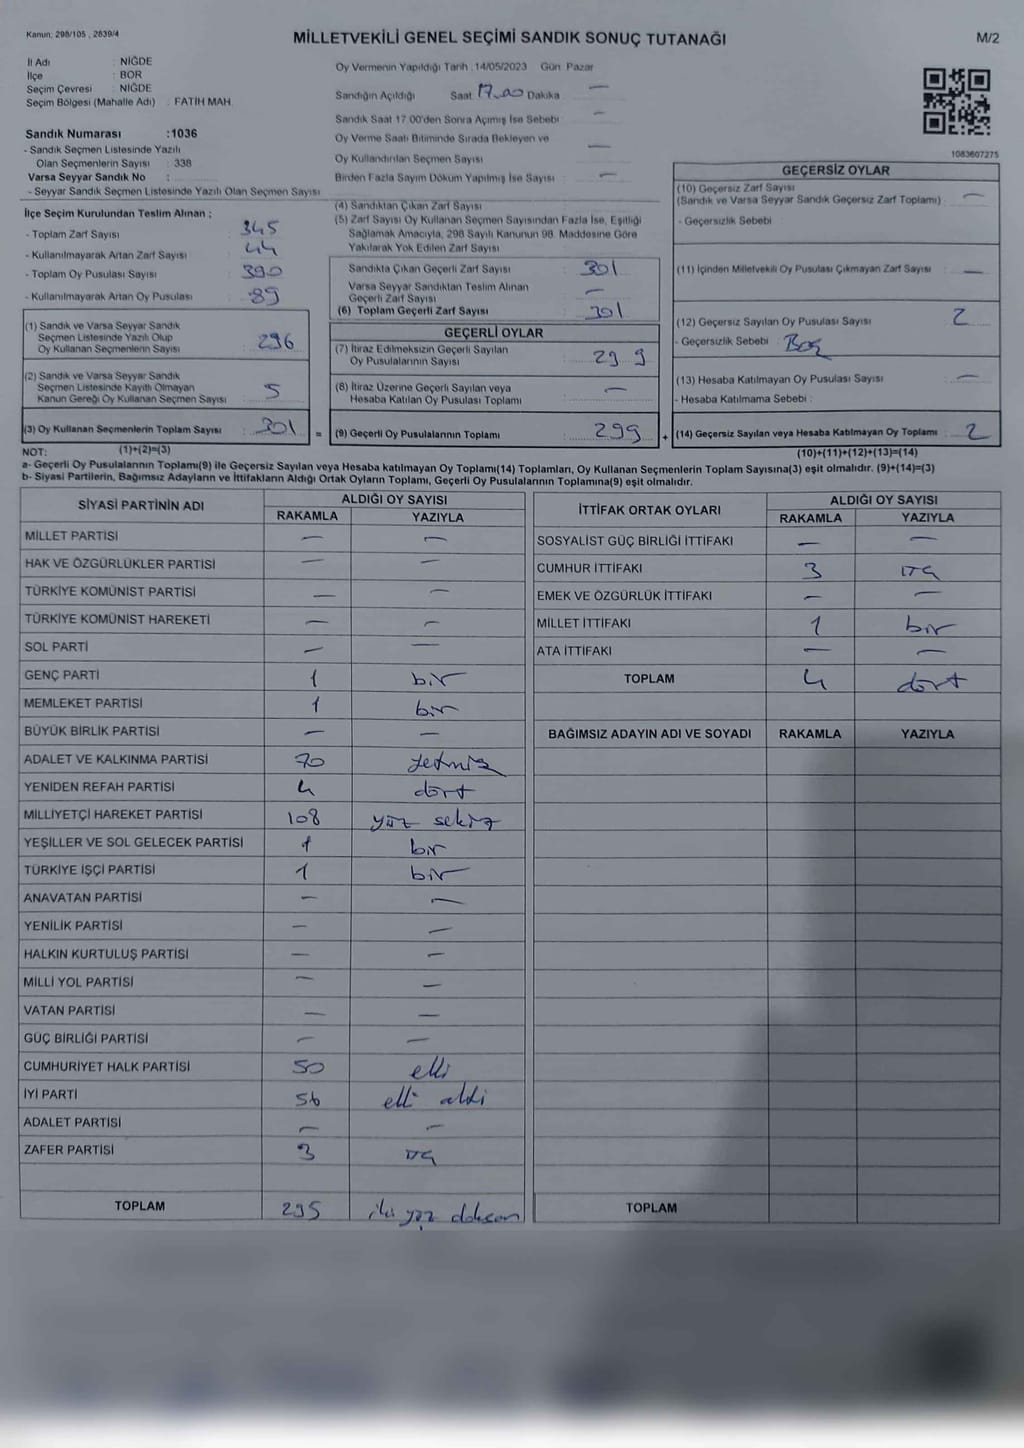 Kanun; 298/105 , 2839/4
MİLLETVEKİLİ GENEL SEÇİMİ SANDIK SONUÇ TUTANAĞI
M/2
İl Adı : NİĞDE
İlçe : BOR
Seçim Çevresi : NİĞDE
Seçim Bölgesi (Mahalle Adı) : FATİH MAH.
Sandık Numarası :1036
- Sandık Seçmen Listesinde Yazılı
Olan Seçmenlerin Sayısı : 338
Varsa Seyyar Sandık No :
- Seyyar Sandık Seçmen Listesinde Yazılı Olan Seçmen Sayısı
Oy Vermenin Yapıldığı Tarih :14/05/2023 Gün: Pazar
Sandığın Açıldığı Saat 17.00 Dakika —
Sandık Saat 17.00'den Sonra Açımış İse Sebebi —
Oy Verme Saati Bitiminde Sırada Bekleyen ve
Oy Kullandırılan Seçmen Sayısı —
Birden Fazla Sayım Döküm Yapılmış İse Sayısı : —
1083607275
İlçe Seçim Kurulundan Teslim Alınan ;
- Toplam Zarf Sayısı : 345
- Kullanılmayarak Artan Zarf Sayısı : 44
- Toplam Oy Pusulası Sayısı : 390
- Kullanılmayarak Artan Oy Pusulası : 89
(1) Sandık ve Varsa Seyyar Sandık
Seçmen Listesinde Yazılı Olup
Oy Kullanan Seçmenlerin Sayısı : 296
(2) Sandık ve Varsa Seyyar Sandık
Seçmen Listesinde Kayıtlı Olmayan
Kanun Gereği Oy Kullanan Seçmen Sayısı : 5
(3) Oy Kullanan Seçmenlerin Toplam Sayısı : 301
(1)+(2)=(3)
(4) Sandıktan Çıkan Zarf Sayısı :
(5) Zarf Sayısı Oy Kullanan Seçmen Sayısından Fazla İse, Eşitliği
Sağlamak Amacıyla, 298 Sayılı Kanunun 98. Maddesine Göre
Yakılarak Yok Edilen Zarf Sayısı
Sandıkta Çıkan Geçerli Zarf Sayısı : 301
Varsa Seyyar Sandıktan Teslim Alınan
Geçerli Zarf Sayısı : —
(6) Toplam Geçerli Zarf Sayısı : 301
GEÇERLİ OYLAR
(7) İtiraz Edilmeksizin Geçerli Sayılan
Oy Pusulalarının Sayısı : 299
(8) İtiraz Üzerine Geçerli Sayılan veya
Hesaba Katılan Oy Pusulası Toplamı : —
= (9) Geçerli Oy Pusulalarının Toplamı : 299
GEÇERSİZ OYLAR
(10) Geçersiz Zarf Sayısı
(Sandık ve Varsa Seyyar Sandık Geçersiz Zarf Toplamı) : —
- Geçersizlik Sebebi :
(11) İçinden Milletvekili Oy Pusulası Çıkmayan Zarf Sayısı : —
(12) Geçersiz Sayılan Oy Pusulası Sayısı : 2
- Geçersizlik Sebebi : Boş
(13) Hesaba Katılmayan Oy Pusulası Sayısı : —
- Hesaba Katılmama Sebebi :
+ (14) Geçersiz Sayılan veya Hesaba Katılmayan Oy Toplamı : 2
(10)+(11)+(12)+(13)=(14)
NOT:
a- Geçerli Oy Pusulalarının Toplamı(9) ile Geçersiz Sayılan veya Hesaba katılmayan Oy Toplamı(14) Toplamları, Oy Kullanan Seçmenlerin Toplam Sayısına(3) eşit olmalıdır. (9)+(14)=(3)
b- Siyasi Partilerin, Bağımsız Adayların ve İttifakların Aldığı Ortak Oyların Toplamı, Geçerli Oy Pusulalarının Toplamına(9) eşit olmalıdır.
SİYASİ PARTİNİN ADI ALDIĞI OY SAYISI
RAKAMLA YAZIYLA
MİLLET PARTİSİ — —
HAK VE ÖZGÜRLÜKLER PARTİSİ — —
TÜRKİYE KOMÜNİST PARTİSİ — —
TÜRKİYE KOMÜNİST HAREKETİ — —
SOL PARTİ — —
GENÇ PARTİ 1 bir
MEMLEKET PARTİSİ 1 bir
BÜYÜK BİRLİK PARTİSİ — —
ADALET VE KALKINMA PARTİSİ 70 yetmiş
YENİDEN REFAH PARTİSİ 4 dört
MİLLİYETÇİ HAREKET PARTİSİ 108 yüz sekiz
YEŞİLLER VE SOL GELECEK PARTİSİ 1 bir
TÜRKİYE İŞÇİ PARTİSİ 1 bir
ANAVATAN PARTİSİ — —
YENİLİK PARTİSİ — —
HALKIN KURTULUŞ PARTİSİ — —
MİLLİ YOL PARTİSİ — —
VATAN PARTİSİ — —
GÜÇ BİRLİĞİ PARTİSİ — —
CUMHURİYET HALK PARTİSİ 50 elli
İYİ PARTİ 56 elli altı
ADALET PARTİSİ — —
ZAFER PARTİSİ 3 üç
TOPLAM 295 iki yüz doksan
İTTİFAK ORTAK OYLARI ALDIĞI OY SAYISI
RAKAMLA YAZIYLA
SOSYALİST GÜÇ BİRLİĞİ İTTİFAKI — —
CUMHUR İTTİFAKI 3 üç
EMEK VE ÖZGÜRLÜK İTTİFAKI — —
MİLLET İTTİFAKI 1 bir
ATA İTTİFAKI — —
TOPLAM 4 dört
BAĞIMSIZ ADAYIN ADI VE SOYADI RAKAMLA YAZIYLA
TOPLAM